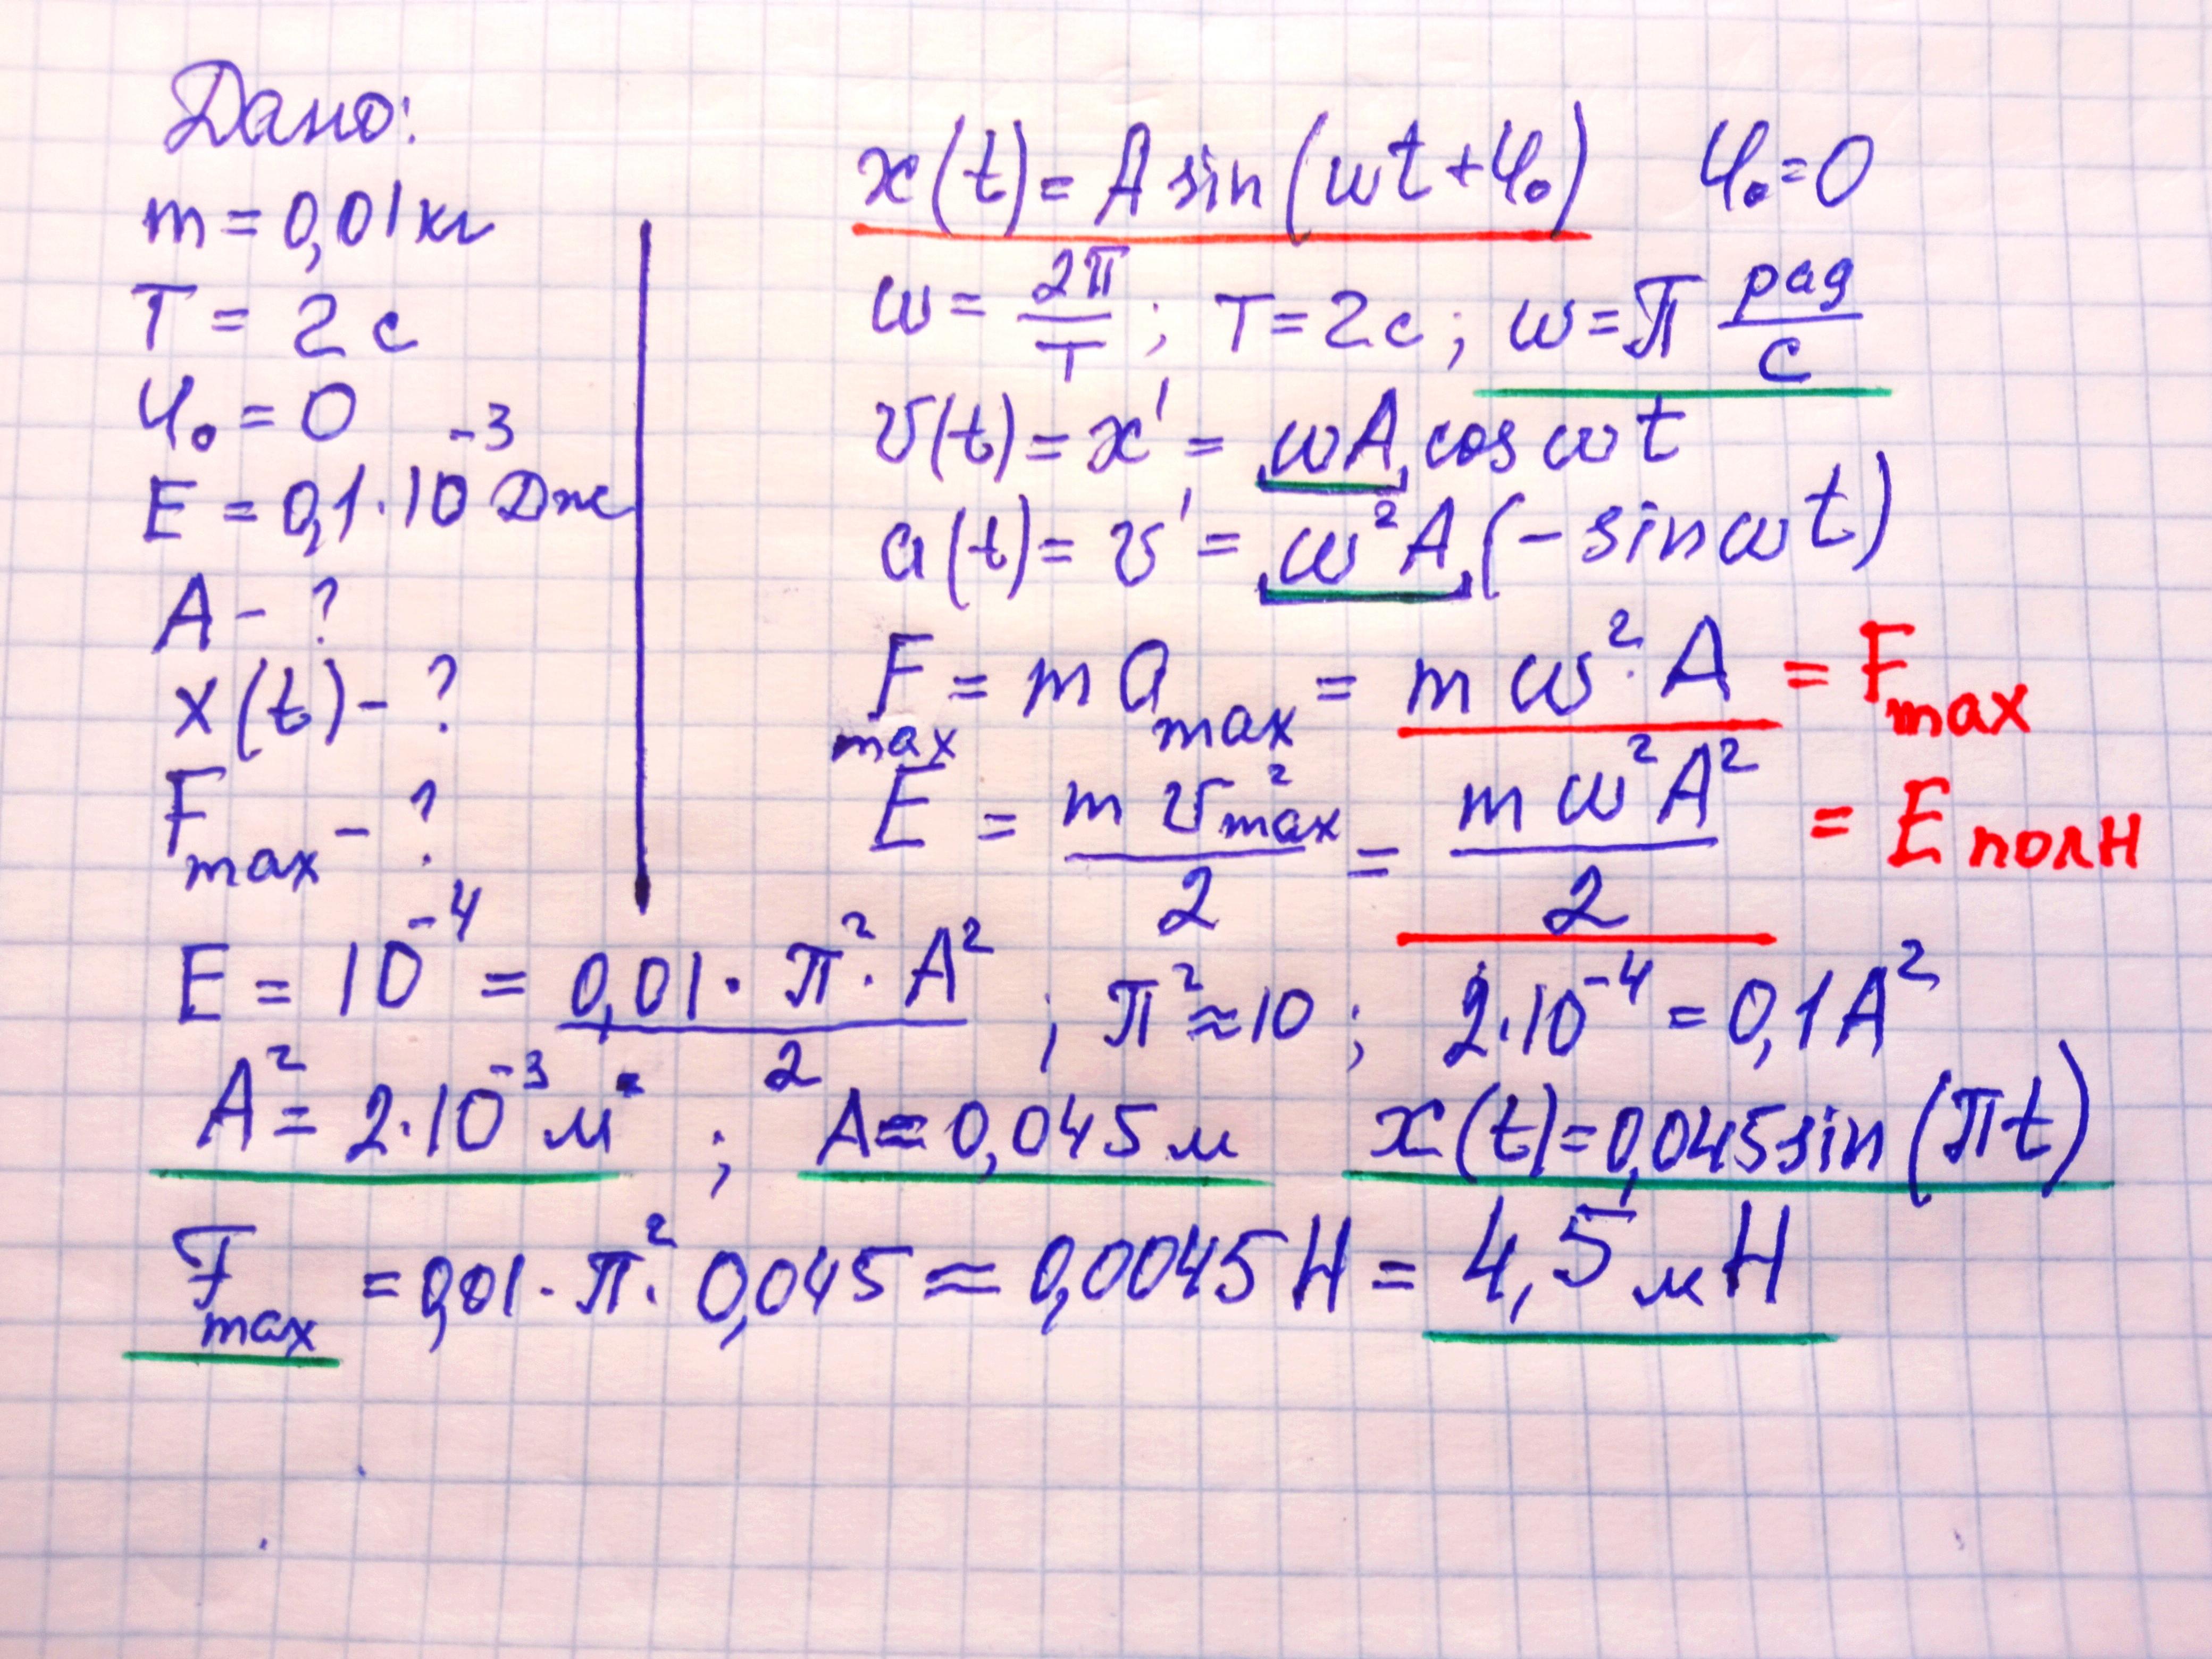 Дано:
m = 0,01 кг
T = 2 с
φ₀ = 0
E = 0,1 · 10⁻³ Дж
A - ?
x(t) - ?
Fmax - ?
x(t) = A sin(ωt + φ₀) φ₀ = 0
ω = 2π/T ; T = 2с ; ω = π рад/с
v(t) = x' = ωA cos ωt
a(t) = v' = ω²A (- sin ωt)
Fmax = m amax = m ω² · A = Fmax
E = m v²max / 2 = m ω² A² / 2 = E полн
E = 10⁻⁴ = 0,01 · π² · A² / 2 ; π² ≈ 10 ; 2 · 10⁻⁴ = 0,1 A²
A² = 2 · 10⁻³ м² ; A ≈ 0,045 м x(t) = 0,045 sin(πt)
Fmax = 0,01 · π² · 0,045 ≈ 0,0045 Н = 4,5 мН